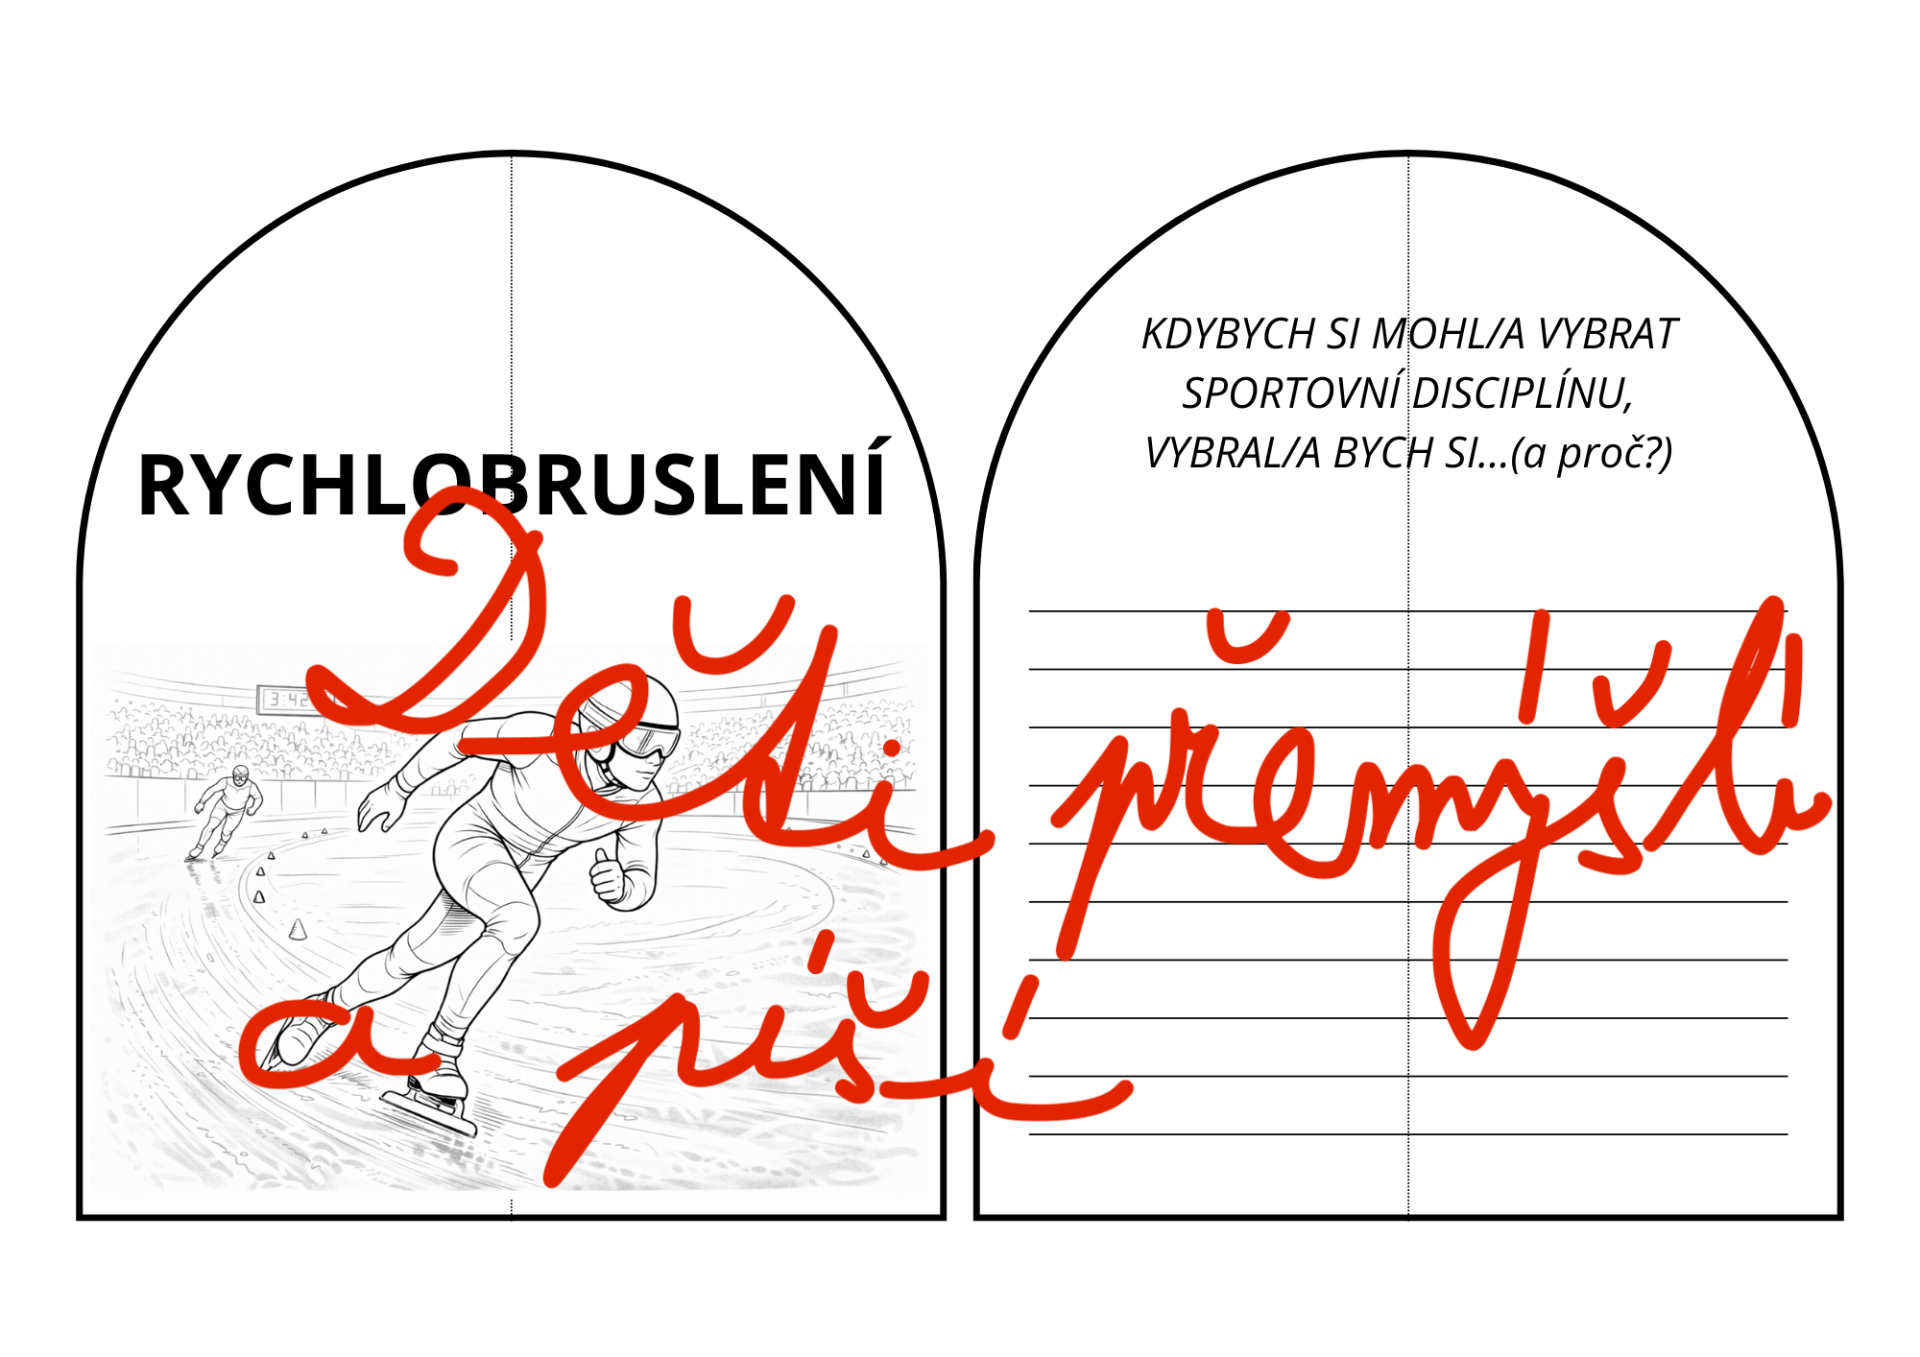 RYCHLOBRUSLENÍ
3:42
KDYBYCH SI MOHL/A VYBRAT
SPORTOVNÍ DISCIPLÍNU,
VYBRAL/A BYCH SI...(a proč?)
Děti přemýšlí
a píší